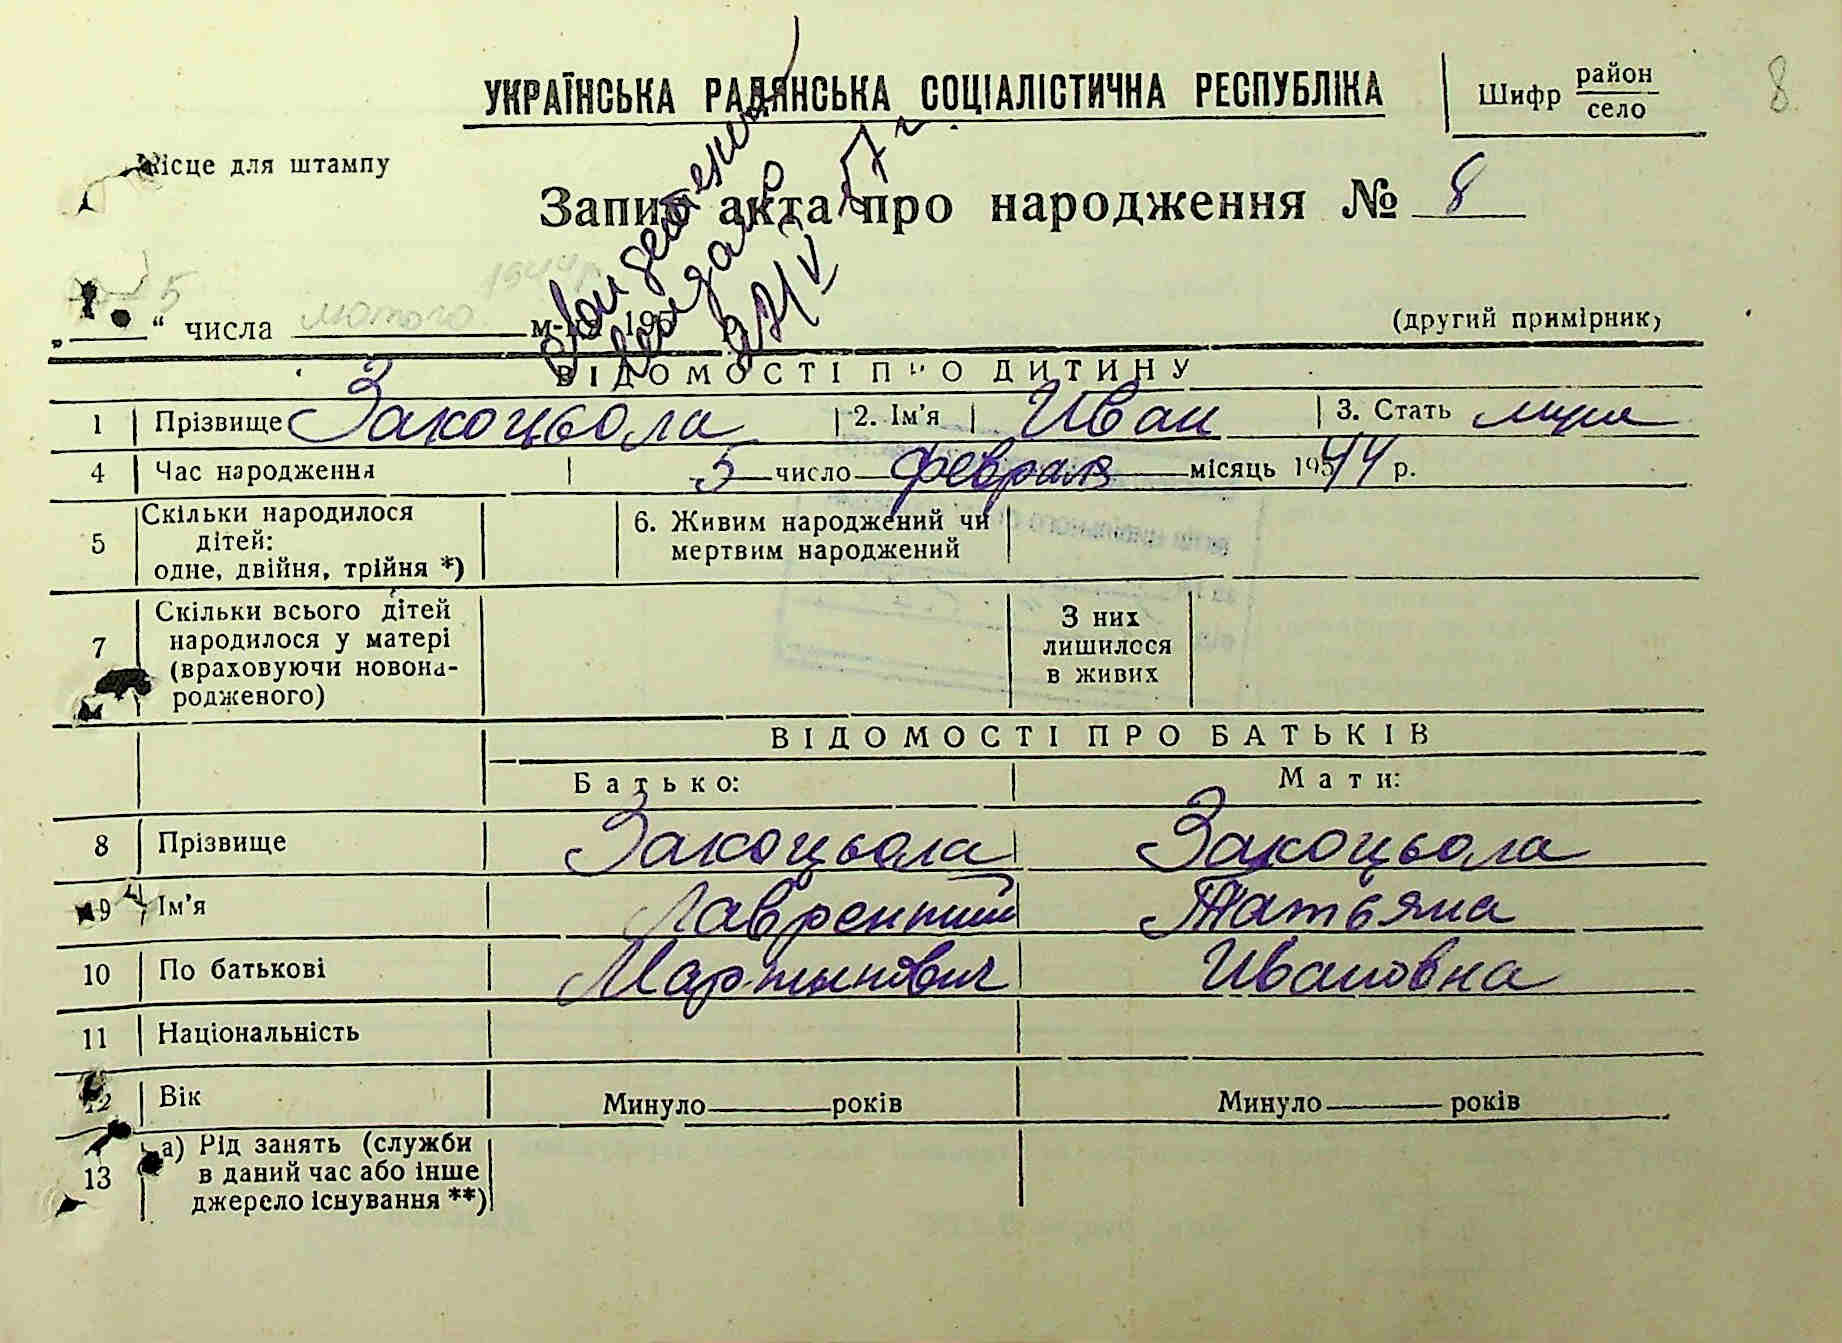 УКРАЇНСЬКА РАДЯНСЬКА СОЦІАЛІСТИЧНА РЕСПУБЛІКА
Шифр район
село
8
Місце для штампу
Запис акта про народження № 8
5
1944 р
„ “ числа лютого м-ця 195
(другий примірник)
ВІДОМОСТІ ПРО ДИТИНУ
1 Прізвище Закоцьола 2. Ім’я Иван 3. Стать муж
4 Час народження 5 число февраля місяць 19544 р.
5 Скільки народилося
дітей:
одне, двійня, трійня *)
6. Живим народжений чи
мертвим народжений
7 Скільки всього дітей
народилося у матері
(враховуючи новона-
родженого)
З них
лишилося
в живих
ВІДОМОСТІ ПРО БАТЬКІВ
Батько: Мати:
8 Прізвище Закоцьола Закоцьола
9 Ім’я Лаврентий Татьяна
10 По батькові Мартынович Ивановна
11 Національність
12 Вік Минуло років Минуло років
13 а) Рід занять (служби
в даний час або інше
джерело існування **)